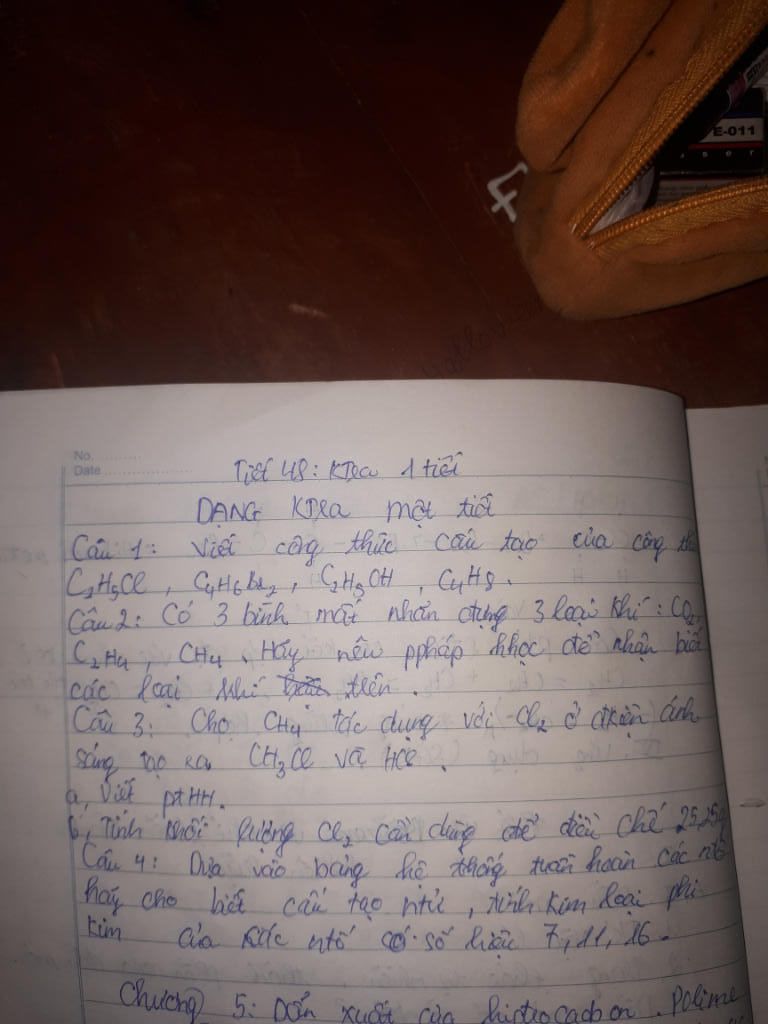 E-011
No.
Date
Tiết 48: KTra 1 tiết
DẠNG KTRa một tiết
Câu 1: Viết công thức cấu tạo của công
C2H5Cl, C4H6Br2, C2H5OH, C4H8.
Câu 2: Có 3 bình mất nhãn đựng 3 loại khí: CO2,
C2H4, CH4. Hãy nêu ppháp hhọc để nhận biết
các loại khí trên.
Câu 3: Cho CH4 tác dụng với Cl2 ở đkiện ánh
sáng tạo ra CH3Cl và HCl.
a, Viết ptHH.
b, Tính khối lượng Cl2 cần dùng để điều chế 25,25g
Câu 4: Dựa vào bảng hệ thống tuần hoàn các ntố
hãy cho biết cấu tạo ntử, tính kim loại phi
kim của các ntố có số hiệu 7, 11, 16.
Chương 5: Dẫn xuất của hiđrocacbon. Polime